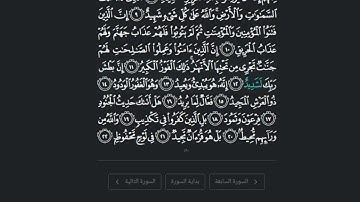 السَّمَٰوَٰتِ وَالْأَرْضِ وَاللَّهُ عَلَىٰ كُلِّ شَىْءٍ شَهِيدٌ ۝٩ إِنَّ الَّذِينَ
فَتَنُوا الْمُؤْمِنِينَ وَالْمُؤْمِنَٰتِ ثُمَّ لَمْ يَتُوبُوا فَلَهُمْ عَذَابُ جَهَنَّمَ وَلَهُمْ
عَذَابُ الْحَرِيقِ ۝١٠ إِنَّ الَّذِينَ ءَامَنُوا وَعَمِلُوا الصَّٰلِحَٰتِ لَهُمْ
جَنَّٰتٌ تَجْرِى مِن تَحْتِهَا الْأَنْهَٰرُ ذَٰلِكَ الْفَوْزُ الْكَبِيرُ ۝١١ إِنَّ بَطْشَ
رَبِّكَ لَشَدِيدٌ ۝١٢ إِنَّهُۥ هُوَ يُبْدِئُ وَيُعِيدُ ۝١٣ وَهُوَ الْغَفُورُ الْوَدُودُ ۝١٤
ذُو الْعَرْشِ الْمَجِيدُ ۝١٥ فَعَّالٌ لِّمَا يُرِيدُ ۝١٦ هَلْ أَتَىٰكَ حَدِيثُ الْجُنُودِ
۝١٧ فِرْعَوْنَ وَثَمُودَ ۝١٨ بَلِ الَّذِينَ كَفَرُوا فِى تَكْذِيبٍ ۝١٩ وَاللَّهُ مِن
وَرَآئِهِم مُّحِيطٌ ۝٢٠ بَلْ هُوَ قُرْءَانٌ مَّجِيدٌ ۝٢١ فِى لَوْحٍ مَّحْفُوظٍ ۝٢٢
السورة السابقة بداية السورة السورة التالية